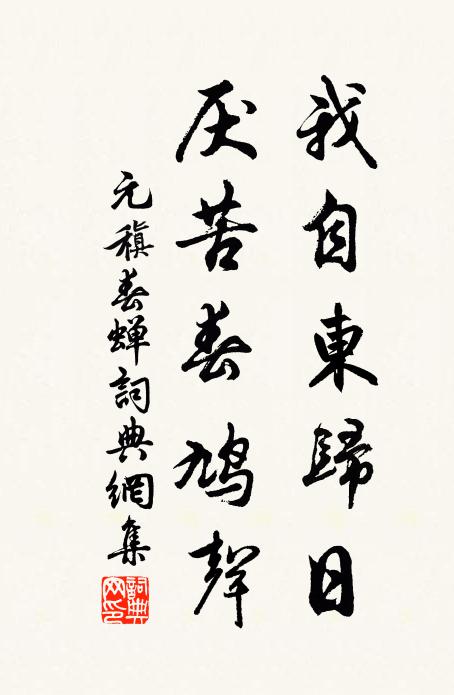 我自東歸日
厌苦春鳩聲
元稹春蝉詞典網集
詞典网印